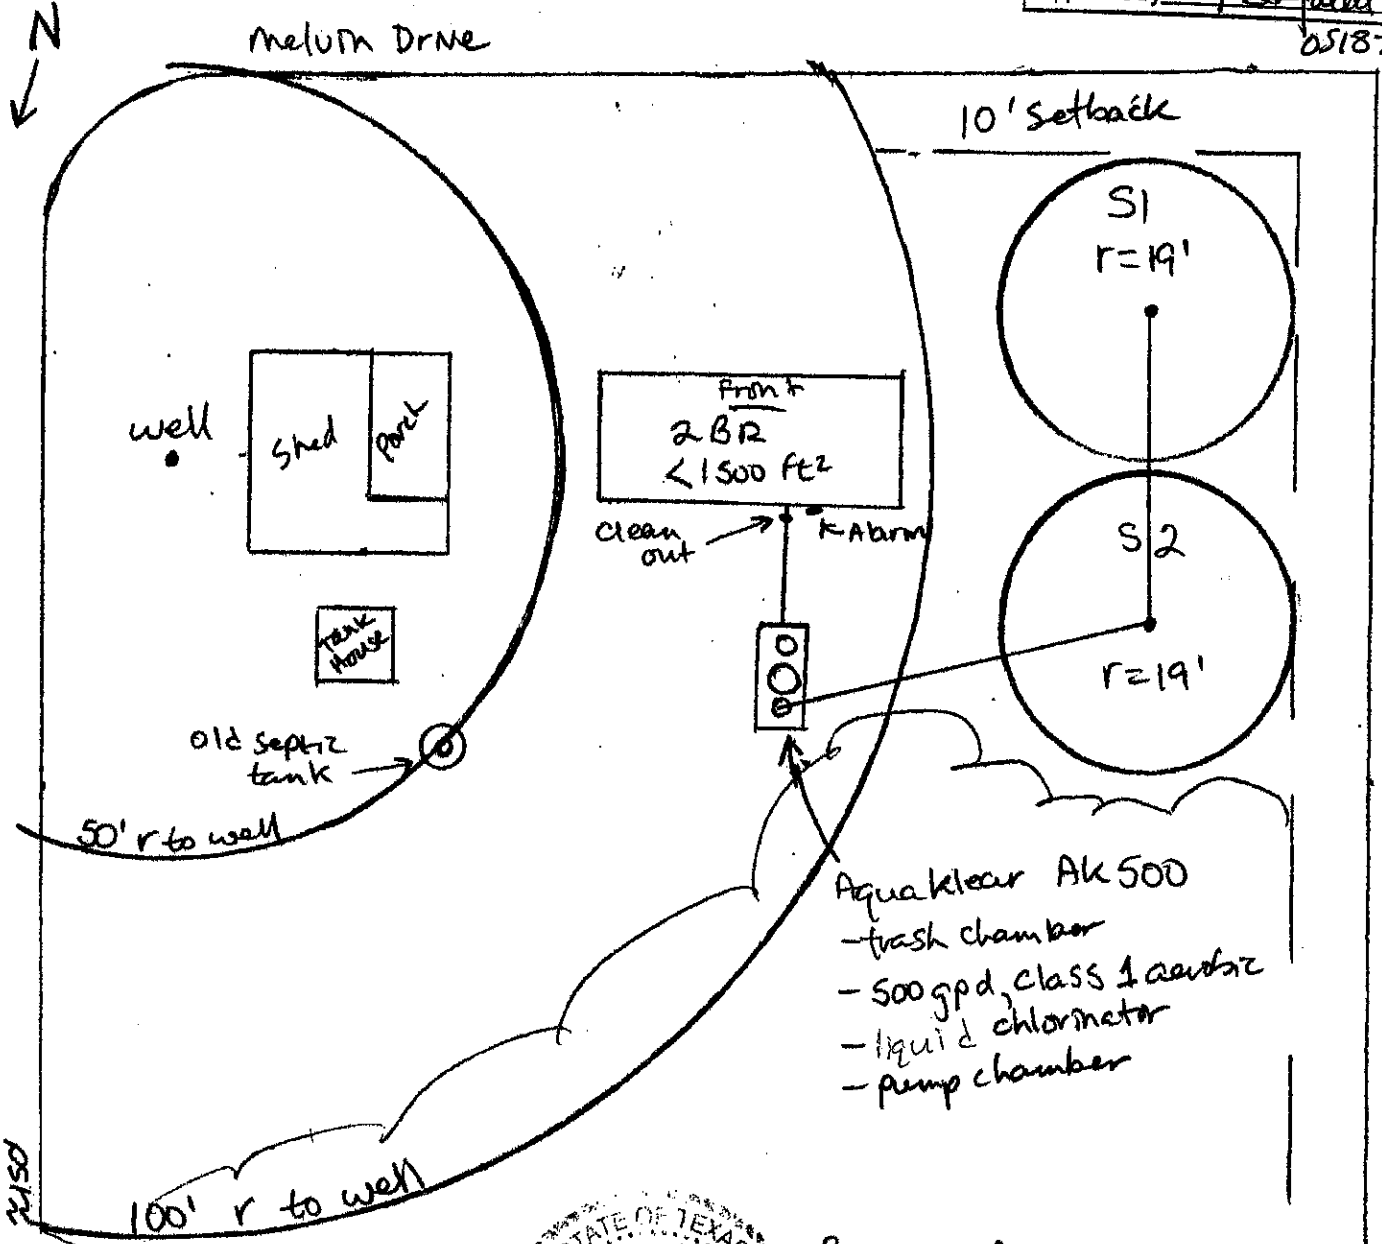 N
Melvin Drive
0518
10' setback
S1
r=19'
well
Shed
Porch
Front
2 BR
<1500 ft²
clean
out
Alarm
S2
r=19'
Tank
House
old septic
tank
50' r to well
Aquaklear AK500
- trash chamber
- 500 gpd, class 1 aerobic
- liquid chlorinator
- pump chamber
100' r to well
STATE OF TEXAS